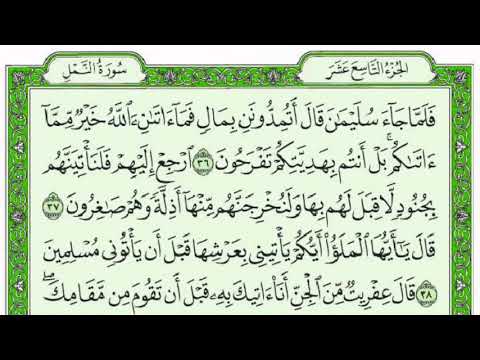 الجزء التاسع عشر
سورة النمل
فَلَمَّا جَآءَ سُلَيْمَٰنَ قَالَ أَتُمِدُّونَنِ بِمَالٍ فَمَآ ءَاتَىٰنِۦَ ٱللَّهُ خَيْرٌ مِّمَّآ
ءَاتَىٰكُم ۚ بَلْ أَنتُم بِهَدِيَّتِكُمْ تَفْرَحُونَ ٣٦ ٱرْجِعْ إِلَيْهِمْ فَلَنَأْتِيَنَّهُم
بِجُنُودٍ لَّا قِبَلَ لَهُم بِهَا وَلَنُخْرِجَنَّهُم مِّنْهَآ أَذِلَّةً وَهُمْ صَٰغِرُونَ ٣٧
قَالَ يَٰٓأَيُّهَا ٱلْمَلَؤُا۟ أَيُّكُمْ يَأْتِينِى بِعَرْشِهَا قَبْلَ أَن يَأْتُونِى مُسْلِمِينَ
٣٨ قَالَ عِفْرِيتٌ مِّنَ ٱلْجِنِّ أَنَا۠ ءَاتِيكَ بِهِۦ قَبْلَ أَن تَقُومَ مِن مَّقَامِكَ ۖ